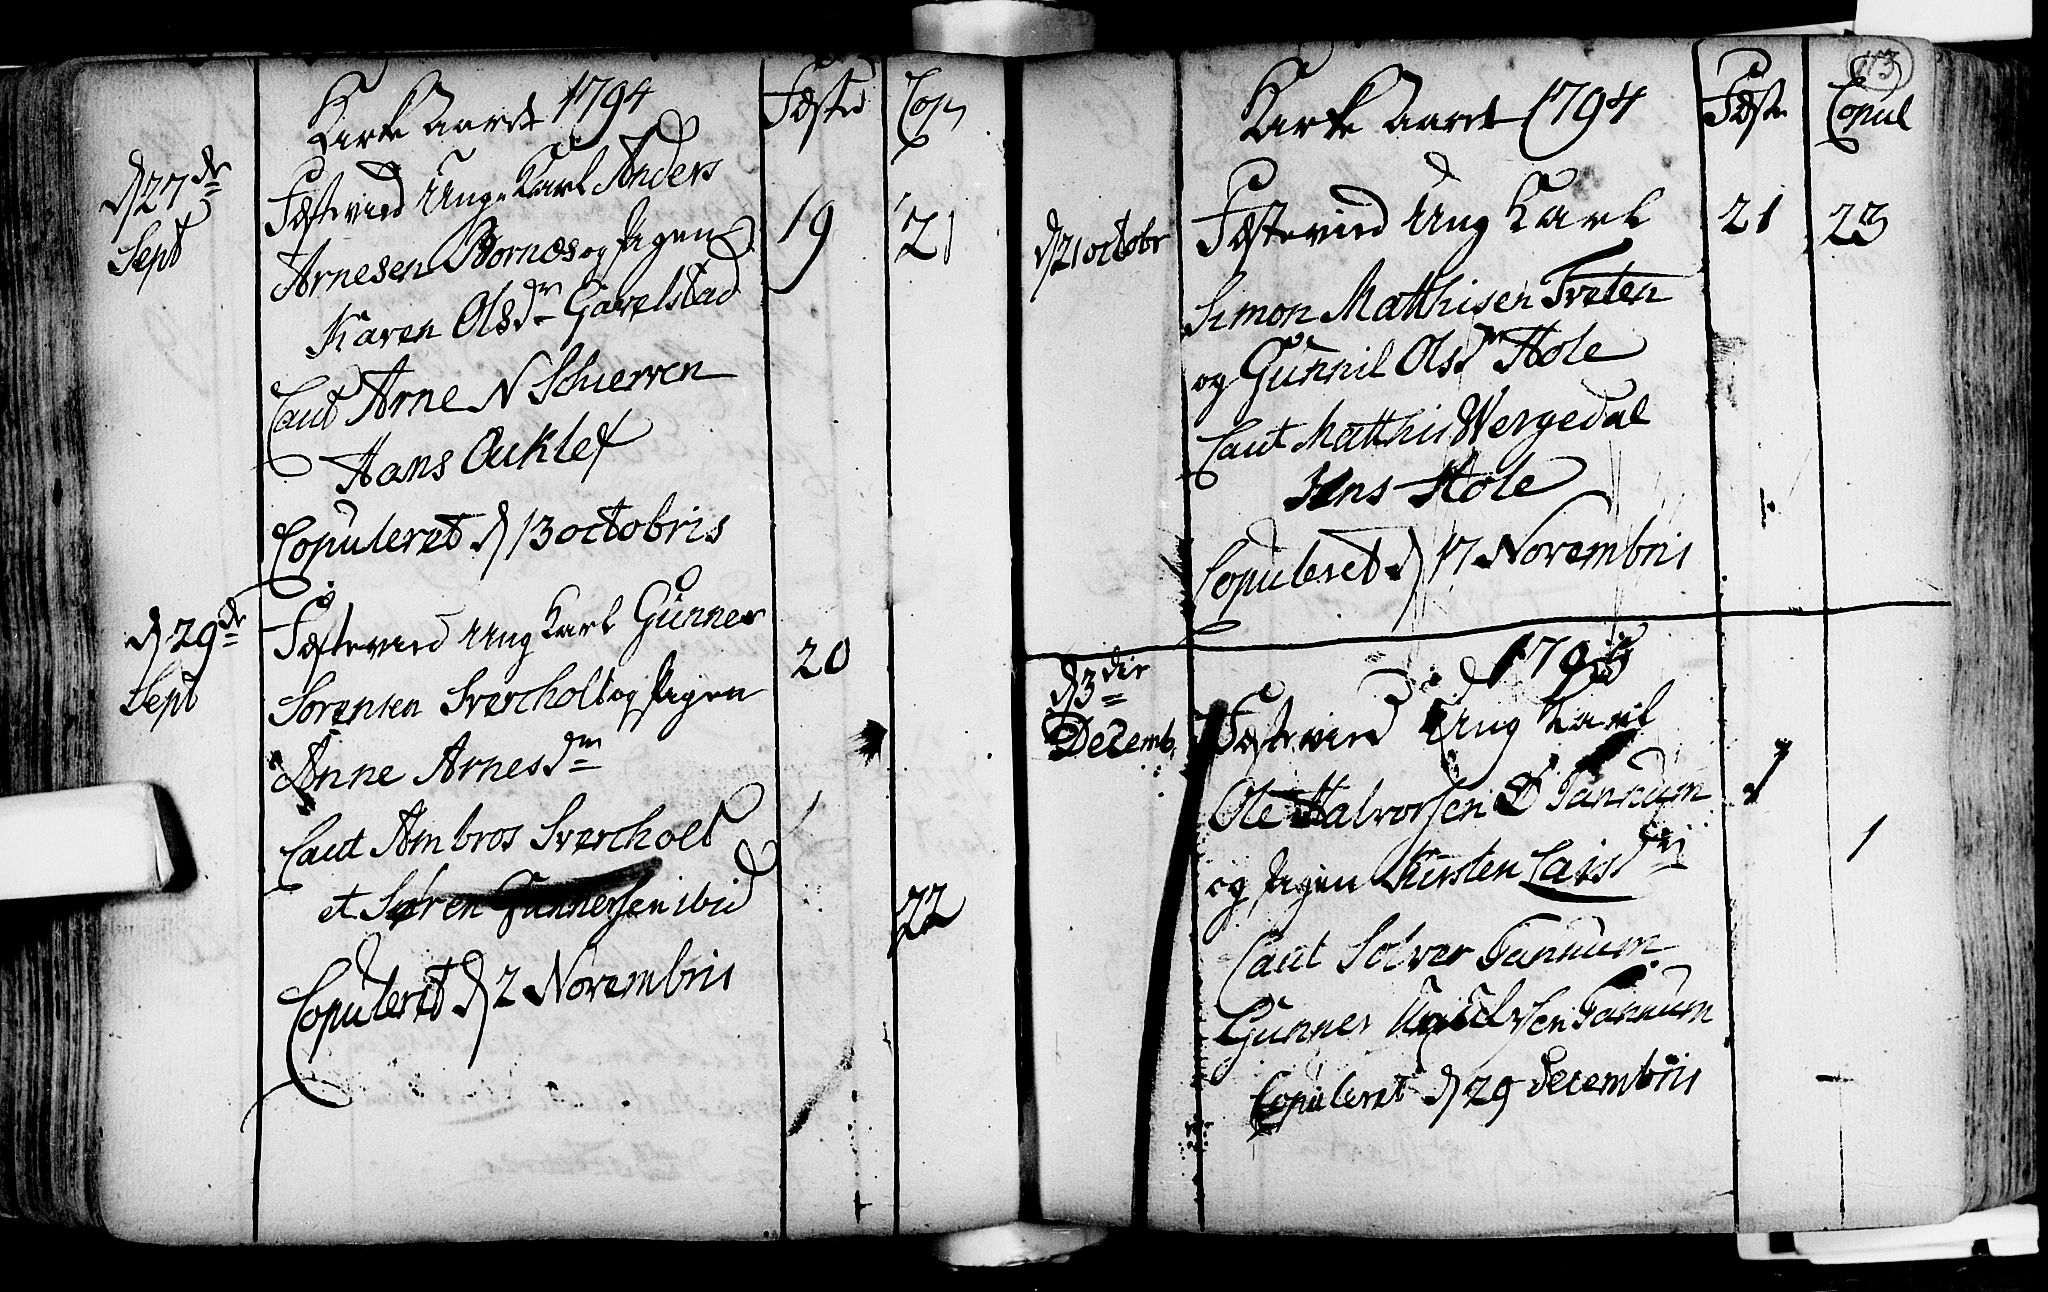 Kirke Aaret 1794
Fæsted
Cop
d 27de
Sept
Fæstevied Unge Karl Anders
Arnesen Bornæs og Pigen
Karen Olsdr Gavelstad
19
21
Caut Arne N Schierven
Hans Auklef
Copuleret d 13 octobris
d 29de
Sept
Fæstevied Ung Karl Gunner
Sörensen Svercholt og Pigen
Anne Arnesdr
20
Caut Ambros Svercholt
et Sören Gunnersen ibid
22
Copuleret d 2 Novembris
113
Kirke Aaret 1794
Fæste
Copul
d 21 octobr
Fæstevied Ung Karl
21
23
Simon Matthisen Tveten
og Gunnil Olsdr Hole
Caut Matthis Wergedal
Jens Hole
Copuleret d 17 Novembris
1795
d 3die
Decemb
Fæstevied Ung Karl
Ole Halvorsen Tannum
1
og Pigen Kirsten Larsdr
1
Caut Solver Tannum
Gunner Knudsen Tannum
Copuleret d 29 decembris